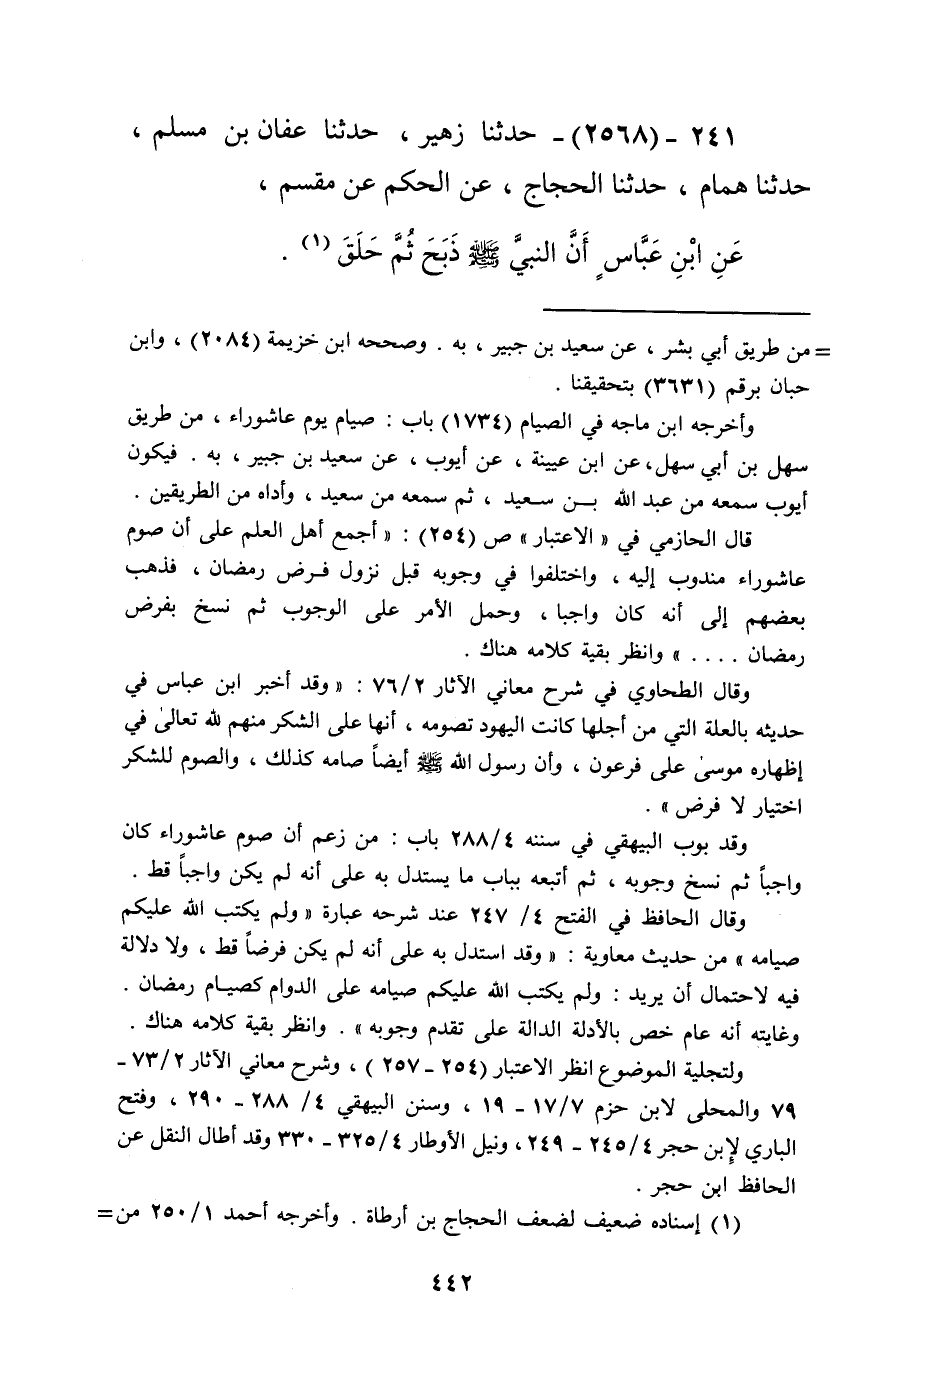 ٢٤١ - (٢٥٦٨) - حدثنا زهير ، حدثنا عفان بن مسلم ،
حدثنا همام ، حدثنا الحجاج ، عن الحكم عن مقسم ،
عَنِ ابْنِ عَبَّاسٍ أَنَّ النبيَّ ﷺ ذَبَحَ ثُمَّ حَلَقَ (١) .
= من طريق أبي بشر ، عن سعيد بن جبير ، به . وصححه ابن خزيمة (٢٠٨٤) ، وابن
حبان برقم (٣٦٣١) بتحقيقنا .
وأخرجه ابن ماجه في الصيام (١٧٣٤) باب : صيام يوم عاشوراء ، من طريق
سهل بن أبي سهل، عن ابن عيينة ، عن أيوب ، عن سعيد بن جبير ، به . فيكون
أيوب سمعه من عبد الله بـن سـعيد ، ثم سمعه من سعيد ، وأداه من الطريقين .
قال الحازمي في « الاعتبار » ص (٢٥٤) : « أجمع أهل العلم على أن صوم
عاشوراء مندوب إليه ، واختلفوا في وجوبه قبل نزول فـرض رمضان ، فذهب
بعضهم إلى أنه كان واجبا ، وحمل الأمر على الوجوب ثم نسخ بفرض
رمضان .... » وانظر بقية كلامه هناك .
وقال الطحاوي في شرح معاني الآثار ٧٦/٢ : « وقد أخبر ابن عباس في
حديثه بالعلة التي من أجلها كانت اليهود تصومه ، أنها على الشكر منهم لله تعالىٰ في
إظهاره موسىٰ على فرعون ، وأن رسول الله ﷺ أيضاً صامه كذلك ، والصوم للشكر
اختيار لا فرض » .
وقد بوب البيهقي في سننه ٢٨٨/٤ باب : من زعم أن صوم عاشوراء كان
واجباً ثم نسخ وجوبه ، ثم أتبعه بباب ما يستدل به على أنه لم يكن واجباً قط .
وقال الحافظ في الفتح ٤/ ٢٤٧ عند شرحه عبارة « ولم يكتب الله عليكم
صيامه » من حديث معاوية : « وقد استدل به على أنه لم يكن فرضاً قط ، ولا دلالة
فيه لاحتمال أن يريد : ولم يكتب الله عليكم صيامه على الدوام كصيـام رمضان .
وغايته أنه عام خص بالأدلة الدالة على تقدم وجوبه » . وانظر بقية كلامه هناك .
ولتجلية الموضوع انظر الاعتبار (٢٥٤ - ٢٥٧ ) ، وشرح معاني الآثار ٧٣/٢ -
٧٩ والمحلى لابن حزم ١٧/٧ - ١٩ ، وسنن البيهقي ٤/ ٢٨٨ - ٢٩٠ ، وفتح
الباري لإبن حجر ٢٤٥/٤ - ٢٤٩ ، ونيل الأوطار ٣٢٥/٤ - ٣٣٠ وقد أطال النقل عن
الحافظ ابن حجر .
(١) إسناده ضعيف لضعف الحجاج بن أرطاة . وأخرجه أحمد ٢٥٠/١ من=
٤٤٢